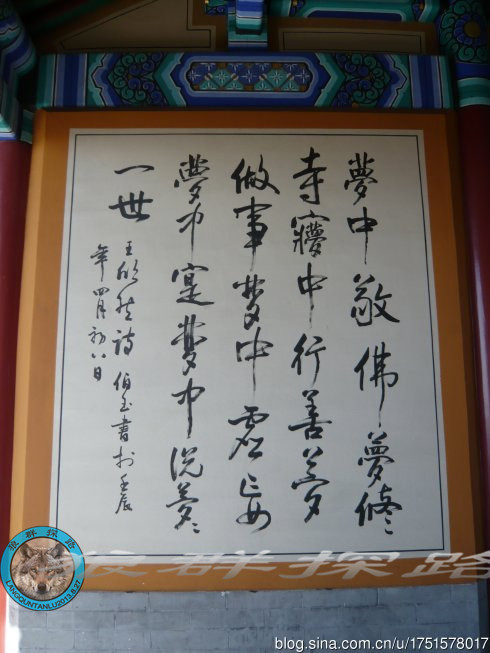 夢中敬佛夢修々
寺寱中行善夢
做事夢中虛妄
夢中寔夢中説夢々
一世
王 詩 伯玉書於壬辰
年四月初八日
狼群探路
LANGQUNTANLU2013.6.27
狼群探路
blog.sina.com.cn/u/1751578017